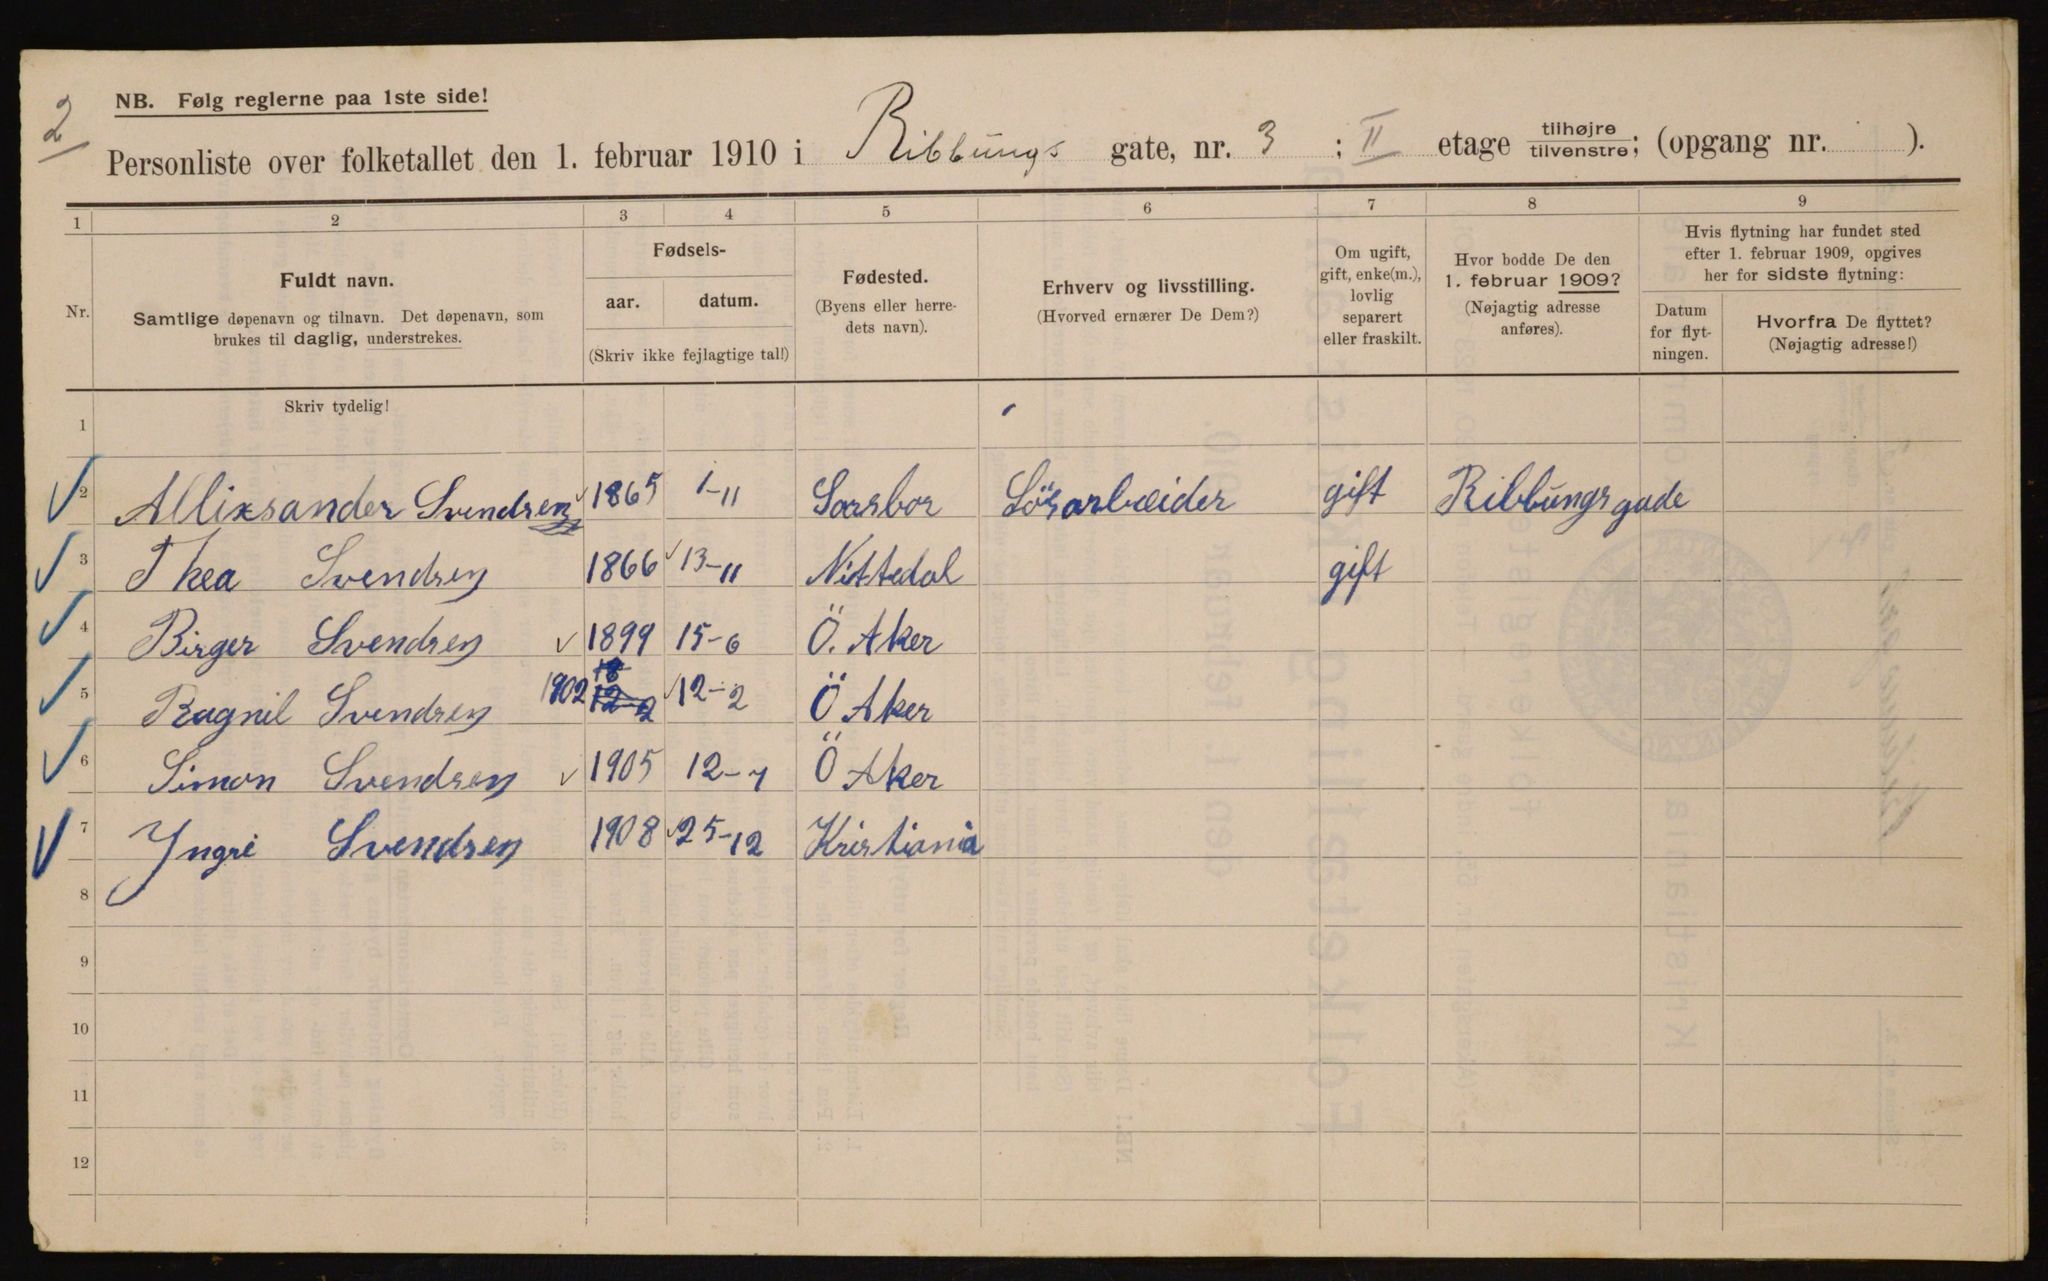 2
NB. Følg reglerne paa 1ste side!
Personliste over folketallet den 1. februar 1910 i Ribbungs gate, nr. 3 ; II etage tilhøjre tilvenstre; (opgang nr. ).
1 2 3 4 5 6 7 8 9
Nr.
Fuldt navn.
Samtlige døpenavn og tilnavn. Det døpenavn, som
brukes til daglig, understrekes.
Fødsels-
aar. datum.
(Skriv ikke fejlagtige tal!)
Fødested.
(Byens eller herre-
dets navn).
Erhverv og livsstilling.
(Hvorved ernærer De Dem?)
Om ugift,
gift, enke(m.),
lovlig
separert
eller fraskilt.
Hvor bodde De den
1. februar 1909?
(Nøjagtig adresse
anføres).
Hvis flytning har fundet sted
efter 1. februar 1909, opgives
her for sidste flytning:
Datum
for flyt-
ningen.
Hvorfra De flyttet?
(Nøjagtig adresse!)
Skriv tydelig!
1
2 Allixsander Svendsen 1865 1-11 Sarsbor Lösarbeider gift Ribbungsgade
3 Thea Svendsen 1866 13-11 Nittedal gift
4 Birger Svendsen 1899 15-6 Ö. Aker
5 Ragnil Svendsen 1902 12-2 Ö Aker
6 Simon Svendsen 1905 12-7 Ö Aker
7 Yngri Svendsen 1908 25-12 Kristiania
8
9
10
11
12